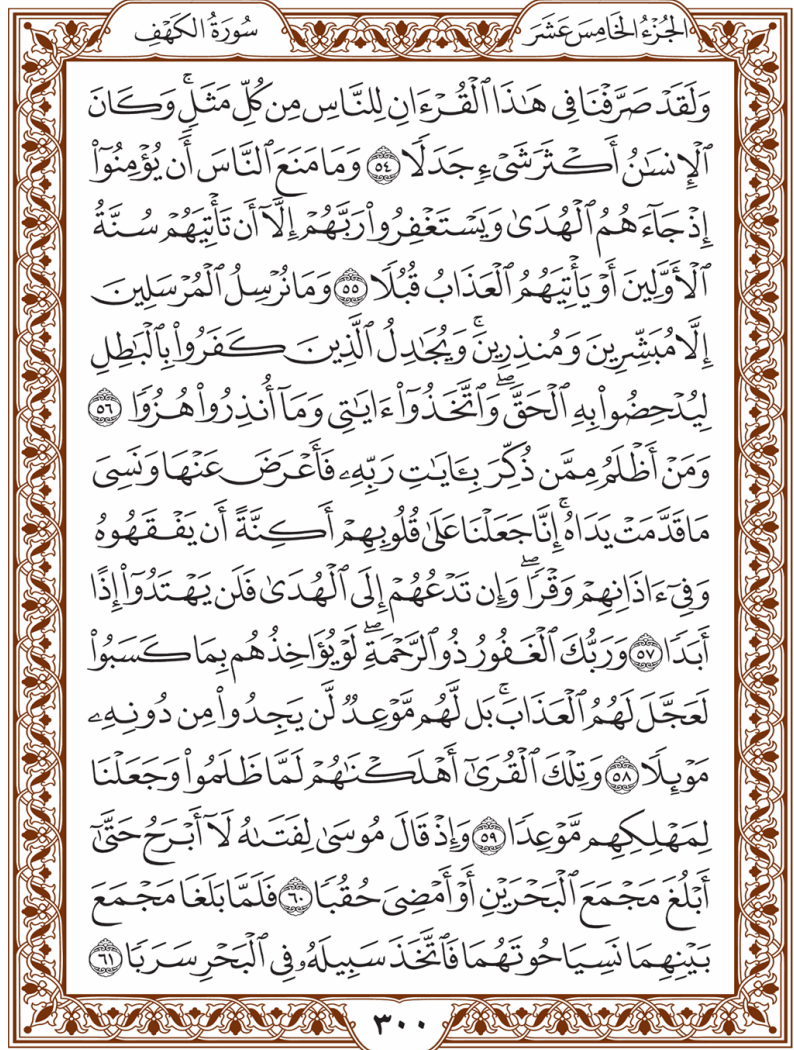 الجُزْءُ الخَامِسَ عَشَرَ
سُورَةُ الكَهْفِ
وَلَقَدْ صَرَّفْنَا فِي هَٰذَا ٱلْقُرْءَانِ لِلنَّاسِ مِن كُلِّ مَثَلٍۚ وَكَانَ
ٱلْإِنسَٰنُ أَكْثَرَ شَىْءٍ جَدَلًا ٥٤ وَمَا مَنَعَ ٱلنَّاسَ أَن يُؤْمِنُوٓا۟
إِذْ جَآءَهُمُ ٱلْهُدَىٰ وَيَسْتَغْفِرُوا۟ رَبَّهُمْ إِلَّآ أَن تَأْتِيَهُمْ سُنَّةُ
ٱلْأَوَّلِينَ أَوْ يَأْتِيَهُمُ ٱلْعَذَابُ قُبُلًا ٥٥ وَمَا نُرْسِلُ ٱلْمُرْسَلِينَ
إِلَّا مُبَشِّرِينَ وَمُنذِرِينَۚ وَيُجَٰدِلُ ٱلَّذِينَ كَفَرُوا۟ بِٱلْبَٰطِلِ
لِيُدْحِضُوا۟ بِهِ ٱلْحَقَّۖ وَٱتَّخَذُوٓا۟ ءَايَٰتِى وَمَآ أُنذِرُوا۟ هُزُوًا ٥٦
وَمَنْ أَظْلَمُ مِمَّن ذُكِّرَ بِـَٔايَٰتِ رَبِّهِۦ فَأَعْرَضَ عَنْهَا وَنَسِىَ
مَا قَدَّمَتْ يَدَاهُۚ إِنَّا جَعَلْنَا عَلَىٰ قُلُوبِهِمْ أَكِنَّةً أَن يَفْقَهُوهُ
وَفِىٓ ءَاذَانِهِمْ وَقْرًاۖ وَإِن تَدْعُهُمْ إِلَى ٱلْهُدَىٰ فَلَن يَهْتَدُوٓا۟ إِذًا
أَبَدًا ٥٧ وَرَبُّكَ ٱلْغَفُورُ ذُو ٱلرَّحْمَةِۖ لَوْ يُؤَاخِذُهُم بِمَا كَسَبُوا۟
لَعَجَّلَ لَهُمُ ٱلْعَذَابَۚ بَل لَّهُم مَّوْعِدٌ لَّن يَجِدُوا۟ مِن دُونِهِۦ
مَوْئِلًا ٥٨ وَتِلْكَ ٱلْقُرَىٰٓ أَهْلَكْنَٰهُمْ لَمَّا ظَلَمُوا۟ وَجَعَلْنَا
لِمَهْلِكِهِم مَّوْعِدًا ٥٩ وَإِذْ قَالَ مُوسَىٰ لِفَتَىٰهُ لَآ أَبْرَحُ حَتَّىٰٓ
أَبْلُغَ مَجْمَعَ ٱلْبَحْرَيْنِ أَوْ أَمْضِىَ حُقُبًا ٦٠ فَلَمَّا بَلَغَا مَجْمَعَ
بَيْنِهِمَا نَسِيَا حُوتَهُمَا فَٱتَّخَذَ سَبِيلَهُۥ فِى ٱلْبَحْرِ سَرَبًا ٦١
٣٠٠